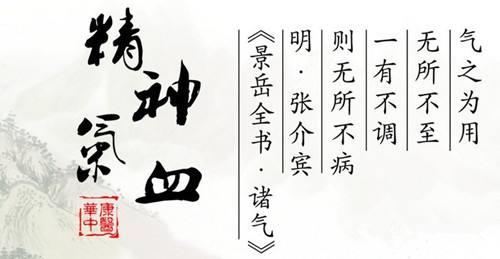 气之为用
无所不至
一有不调
则无所不病
明·张介宾
《景岳全书·诸气》
精神
氣血
康醫
華中